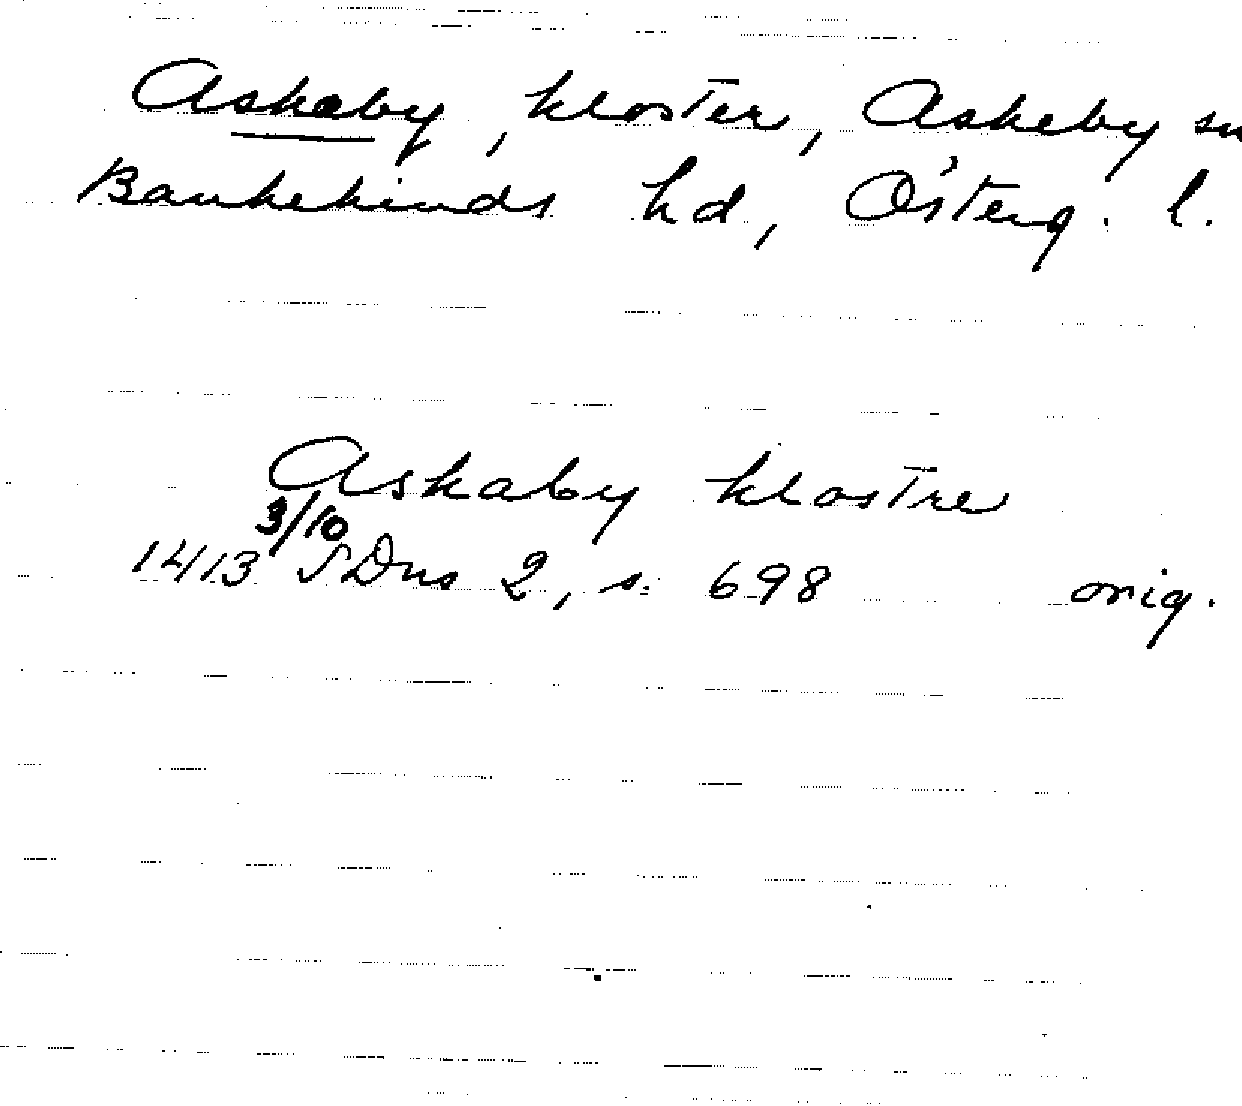 Askeby, kloster, Askeby sn
Bankekinds hd, Österg. l.
Askaby klostre
3/10
1413 SDns 2, s. 698 orig.